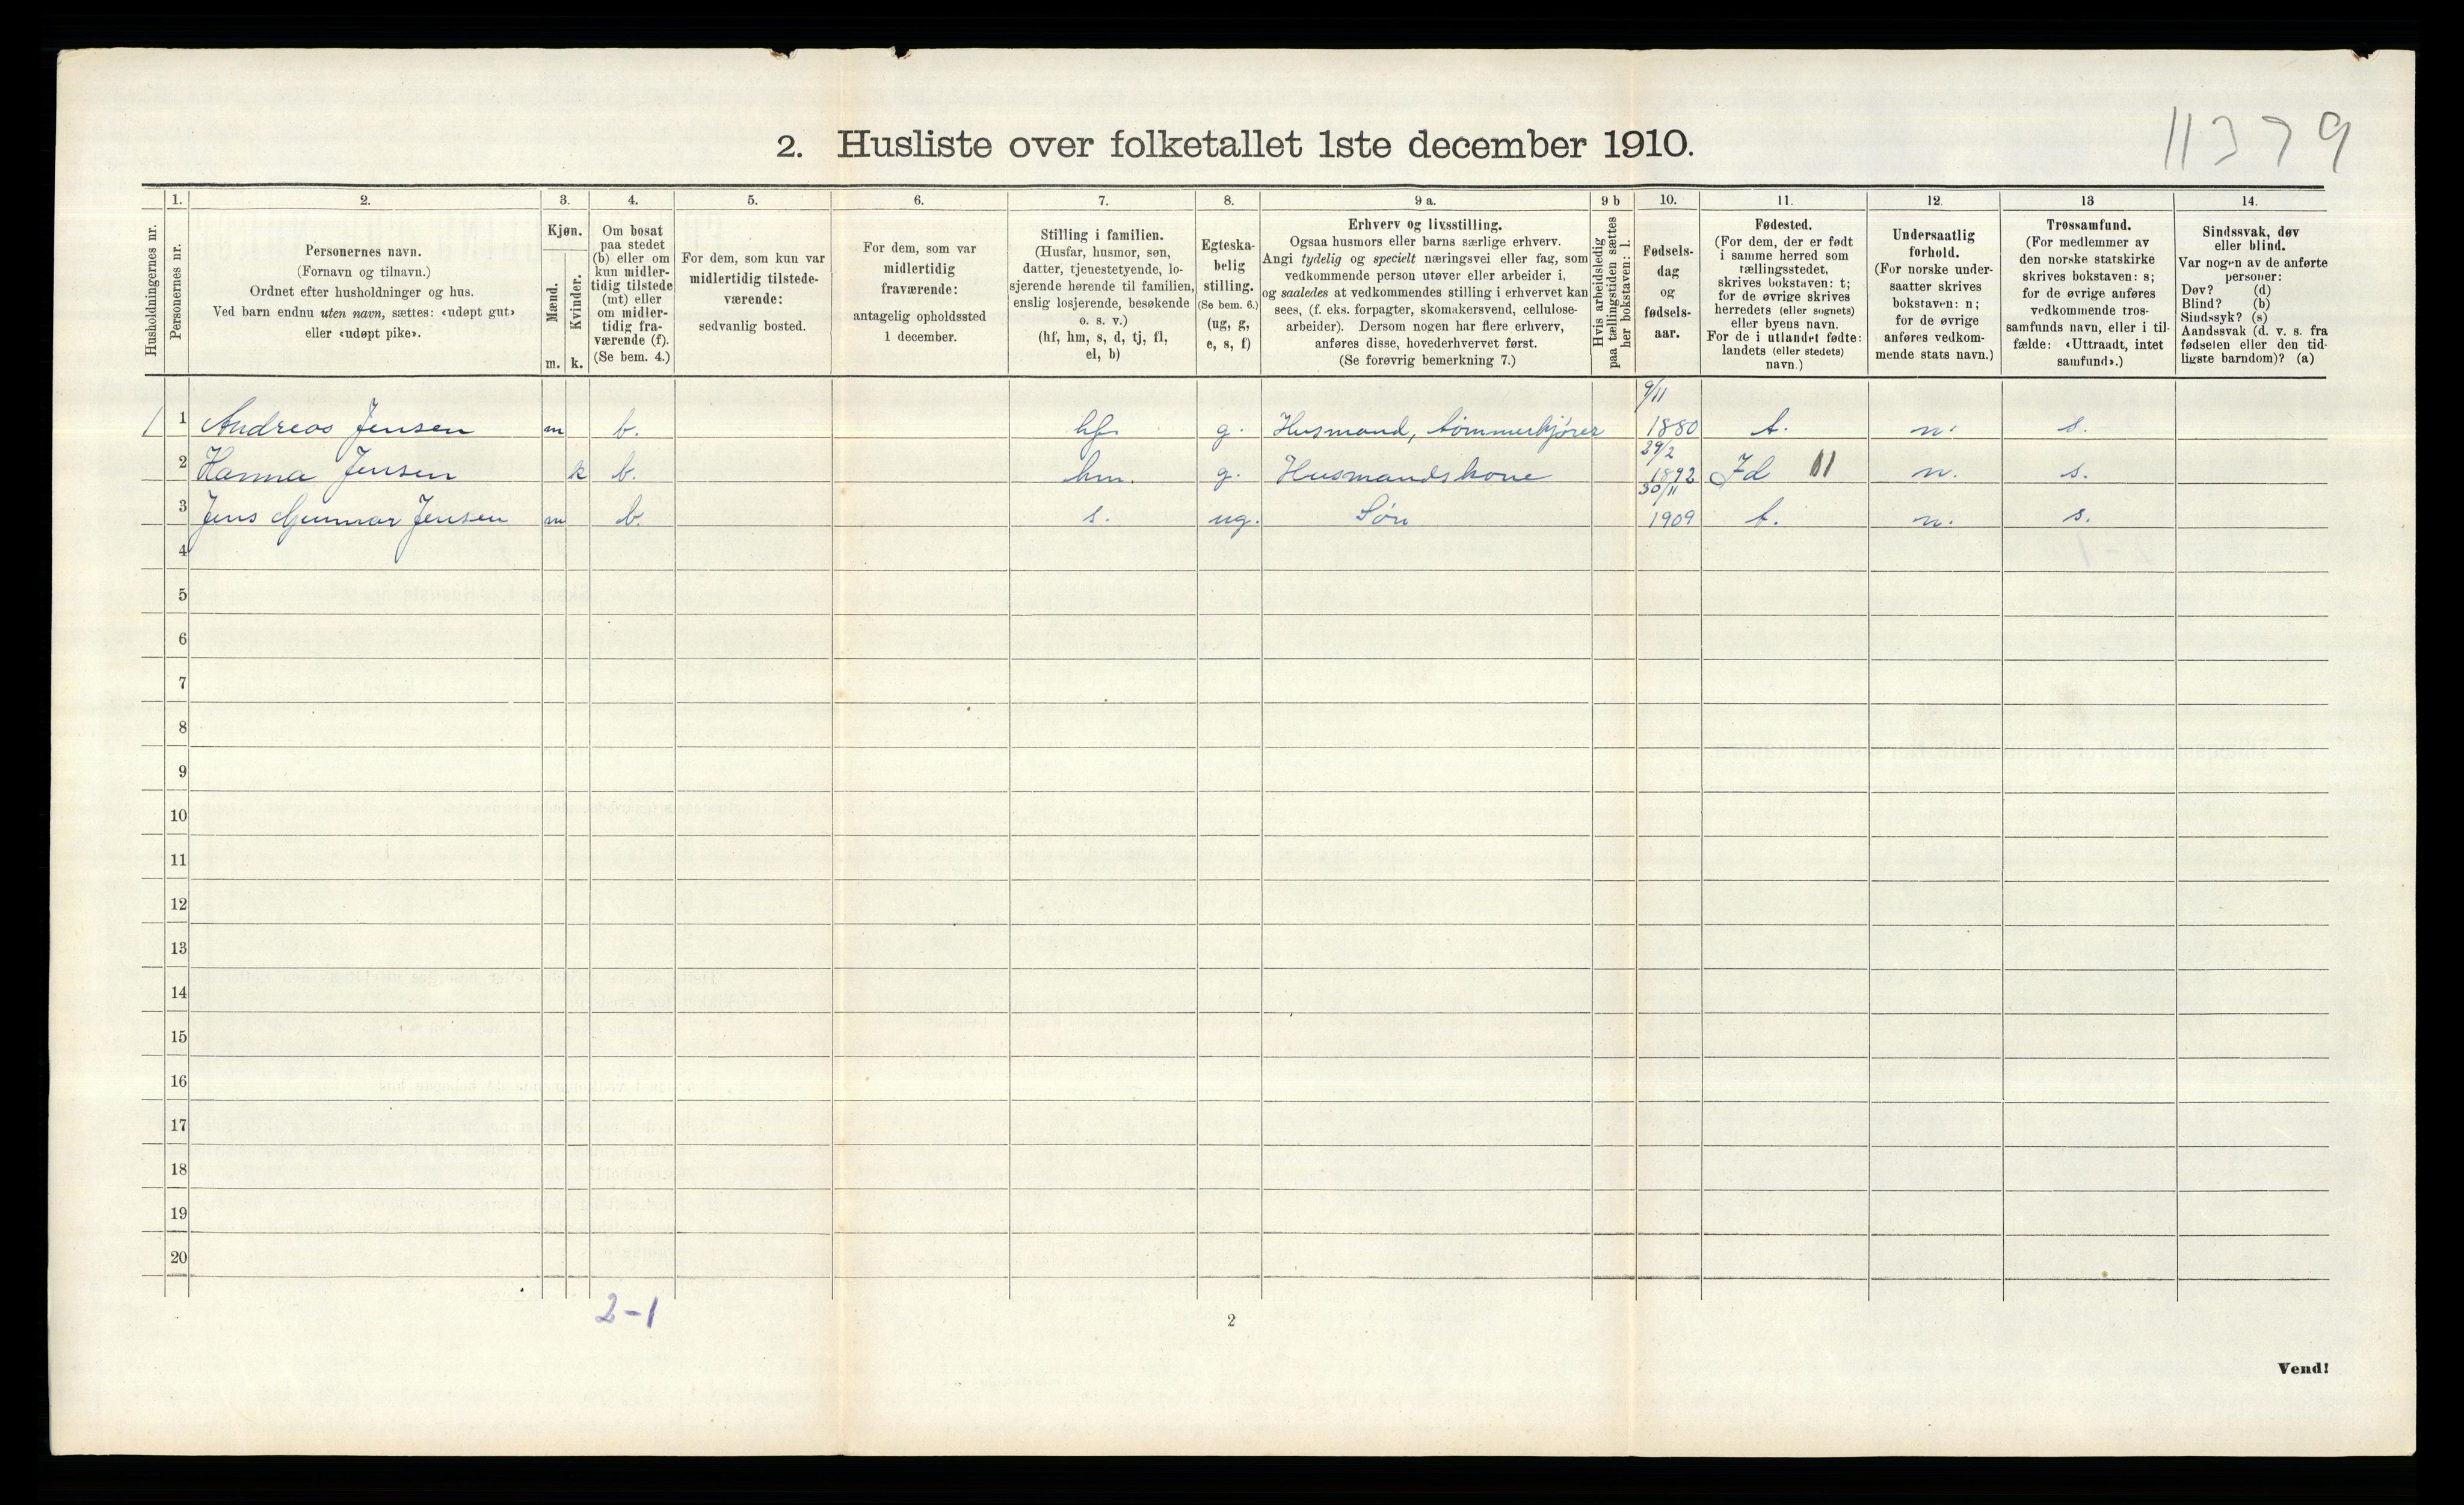 11379
2. Husliste over folketallet 1ste december 1910.
Husholdningernes nr.
1.
Personernes nr.
2.
Personernes navn.
(Fornavn og tilnavn.)
Ordnet efter husholdninger og hus.
Ved barn endnu uten navn, sættes: «udøpt gut»
eller «udøpt pike».
3.
Kjøn.
Mænd.
m.
Kvinder.
k.
4.
Om bosat
paa stedet
(b) eller om
kun midler-
tidig tilstede
(mt) eller
om midler-
tidig fra-
værende (f).
(Se bem. 4.)
5.
For dem, som kun var
midlertidig tilstede-
værende:
sedvanlig bosted.
6.
For dem, som var
midlertidig
fraværende:
antagelig opholdssted
1 december.
7.
Stilling i familien.
(Husfar, husmor, søn,
datter, tjenestetyende, lo-
sjerende hørende til familien,
enslig losjerende, besøkende
o. s. v.)
(hf, hm, s, d, tj, fl,
el, b)
8.
Egteska-
belig
stilling.
(Se bem. 6.)
(ug, g,
e, s, f)
9 a.
Erhverv og livsstilling.
Ogsaa husmors eller barns særlige erhverv.
Angi tydelig og specielt næringsvei eller fag, som
vedkommende person utøver eller arbeider i,
og saaledes at vedkommendes stilling i erhvervet kan
sees, (f. eks. forpagter, skomakersvend, cellulose-
arbeider). Dersom nogen har flere erhverv,
anføres disse, hovederhvervet først.
(Se forøvrig bemerkning 7.)
9 b
Hvis arbeidsledig
paa tællingstiden sættes
her bokstaven: l.
10.
Fødsels-
dag
og
fødsels-
aar.
11.
Fødested.
(For dem, der er født
i samme herred som
tællingsstedet,
skrives bokstaven: t;
for de øvrige skrives
herredets (eller sognets)
eller byens navn.
For de i utlandet fødte:
landets (eller stedets)
navn.)
12.
Undersaatlig
forhold.
(For norske under-
saatter skrives
bokstaven: n;
for de øvrige
anføres vedkom-
mende stats navn.)
13
Trossamfund.
(For medlemmer av
den norske statskirke
skrives bokstaven: s;
for de øvrige anføres
vedkommende tros-
samfunds navn, eller i til-
fælde: «Uttraadt, intet
samfund».)
14.
Sindssvak, døv
eller blind.
Var nogen av de anførte
personer:
Døv? (d)
Blind? (b)
Sindssyk? (s)
Aandssvak (d. v. s. fra
fødselen eller den tid-
ligste barndom)? (a)
1 1 Andreas Jensen m b. hf. g. Husmand, tømmerkjører 9/11 1880 t. n. s.
2 Hanna Jensen k b. hm. g. Husmandskone 29/2 1892 Id 01 n. s.
3 Jens Gunnar Jensen m b. s. ug. Søn 30/11 1909 t. n. s.
4
5
6
7
8
9
10
11
12
13
14
15
16
17
18
19
20
2-1
2
Vend!